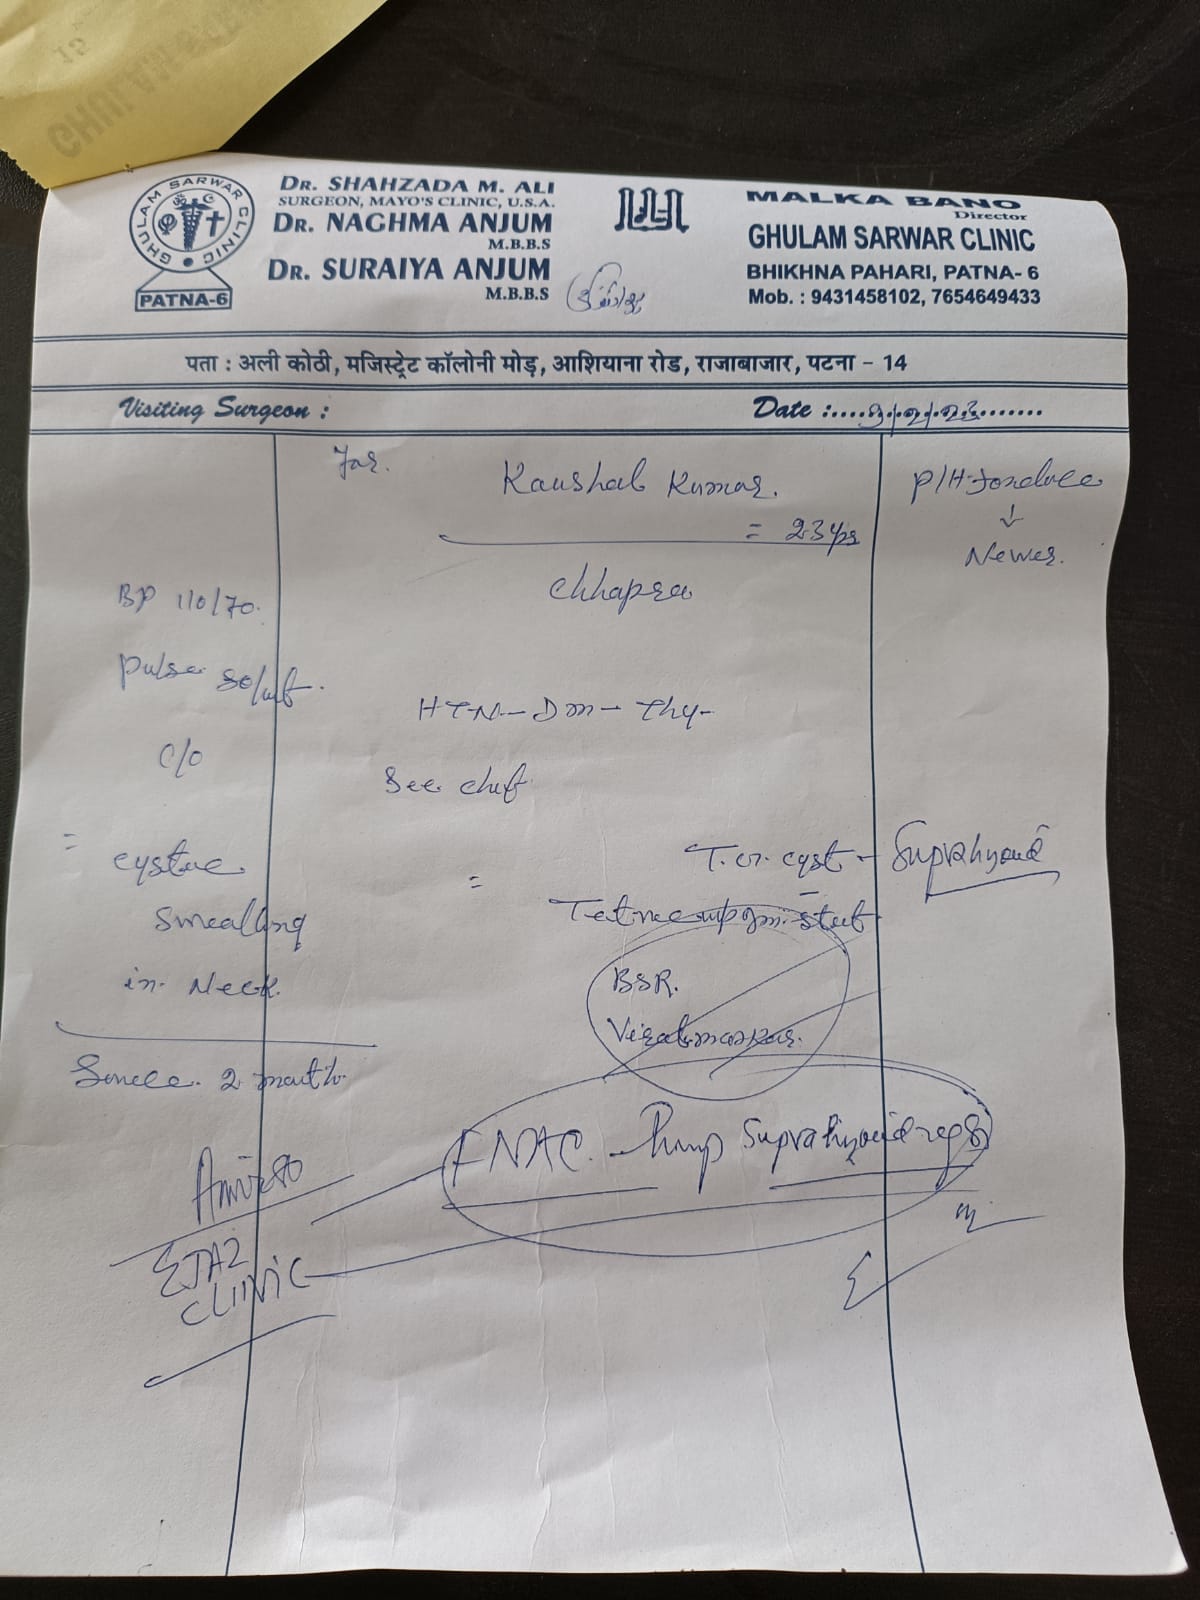 GHULAM SARWAR CLINIC
PATNA-6
DR. SHAHZADA M. ALI
SURGEON, MAYO'S CLINIC, U.S.A.
DR. NAGHMA ANJUM
M.B.B.S
DR. SURAIYA ANJUM
M.B.B.S
MALKA BANO
Director
GHULAM SARWAR CLINIC
BHIKHNA PAHARI, PATNA- 6
Mob. : 9431458102, 7654649433
पता : अली कोठी, मजिस्ट्रेट कॉलोनी मोड़, आशियाना रोड, राजाबाजार, पटना - 14
Visiting Surgeon :
Date :
For.
Kaushal Kumar.
= 23 yrs
Chhapra
P/H
↓
Never.
BP 110/70.
Pulse
C/O
= cystic
swelling
in Neck.
Since 2 month.
HTN- Dm- Thy-
See chest
= cyst - Suprahyoid
BSR.
Viral marker.
FNAC. Suprahyoid
EJAZ
CLINIC